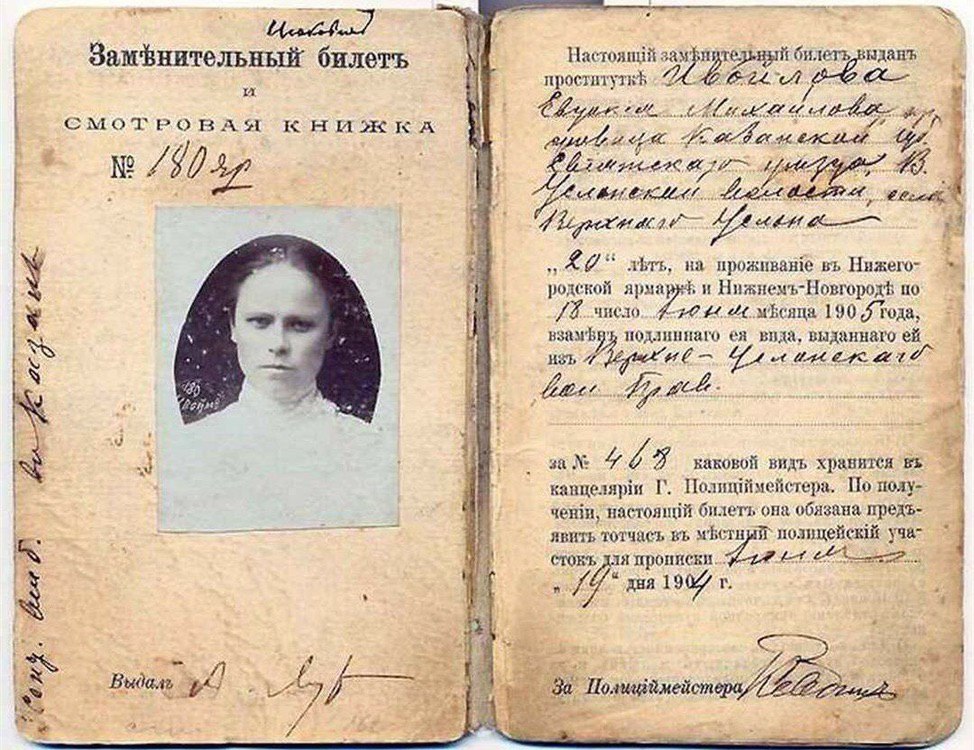 Замѣнительный билетъ
и
СМОТРОВАЯ КНИЖКА
№ 180 яр
180
Выдалъ
Настоящій замѣнительный билетъ выданъ
проституткѣ Ивойлова
Евдокія Михайлова
Казанской губ
уѣзда, В.
Услонской волости, села
Верхняго Услона
„20“ лѣтъ, на проживаніе въ Нижего-
родской ярмаркѣ и Нижнемъ-Новгородѣ по
18 число Іюня мѣсяца 1905 года,
взамѣнъ подлиннаго ея вида, выданнаго ей
изъ Верхне-Услонскаго
вол Прав.
за № 468 каковой видъ хранится въ
канцеляріи Г. Полиціймейстера. По полу-
ченіи, настоящій билетъ она обязана предъ-
явить тотчасъ въ мѣстный полицейскій уча-
стокъ для прописки Іюня
„19“ дня 1904 г.
За Полиціймейстера